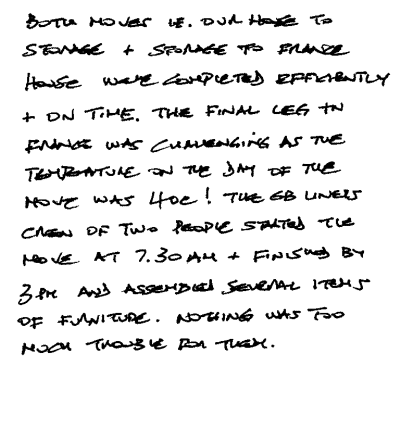 BOTH MOVES IE. OUR HOUSE TO
STORAGE + STORAGE TO FRANCE
HOUSE WERE COMPLETED EFFICIENTLY
+ ON TIME. THE FINAL LEG IN
FRANCE WAS CHALLENGING AS THE
TEMPERATURE ON THE DAY OF THE
MOVE WAS 40C! THE GB LINERS
CREW OF TWO PEOPLE STARTED THE
MOVE AT 7.30AM + FINISHED BY
3PM AND ASSEMBLED SEVERAL ITEMS
OF FURNITURE. NOTHING WAS TOO
MUCH TROUBLE FOR THEM.